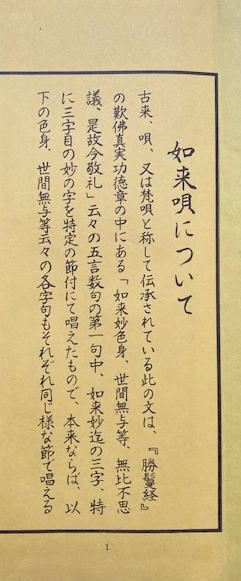 如来唄について
古来、唄、又は梵唄と称して伝承されている此の文は、『勝鬘経』
の歎佛真実功徳章の中にある「如来妙色身、世間無与等、無比不思
議、是故今敬礼」云々の五言数句の第一句中、如来妙迄の三字、特
に三字目の妙の字を特定の節付にて唱えたもので、本来ならば、以
下の色身、世間無与等云々の各字句もそれぞれ同じ様な節で唱える
1